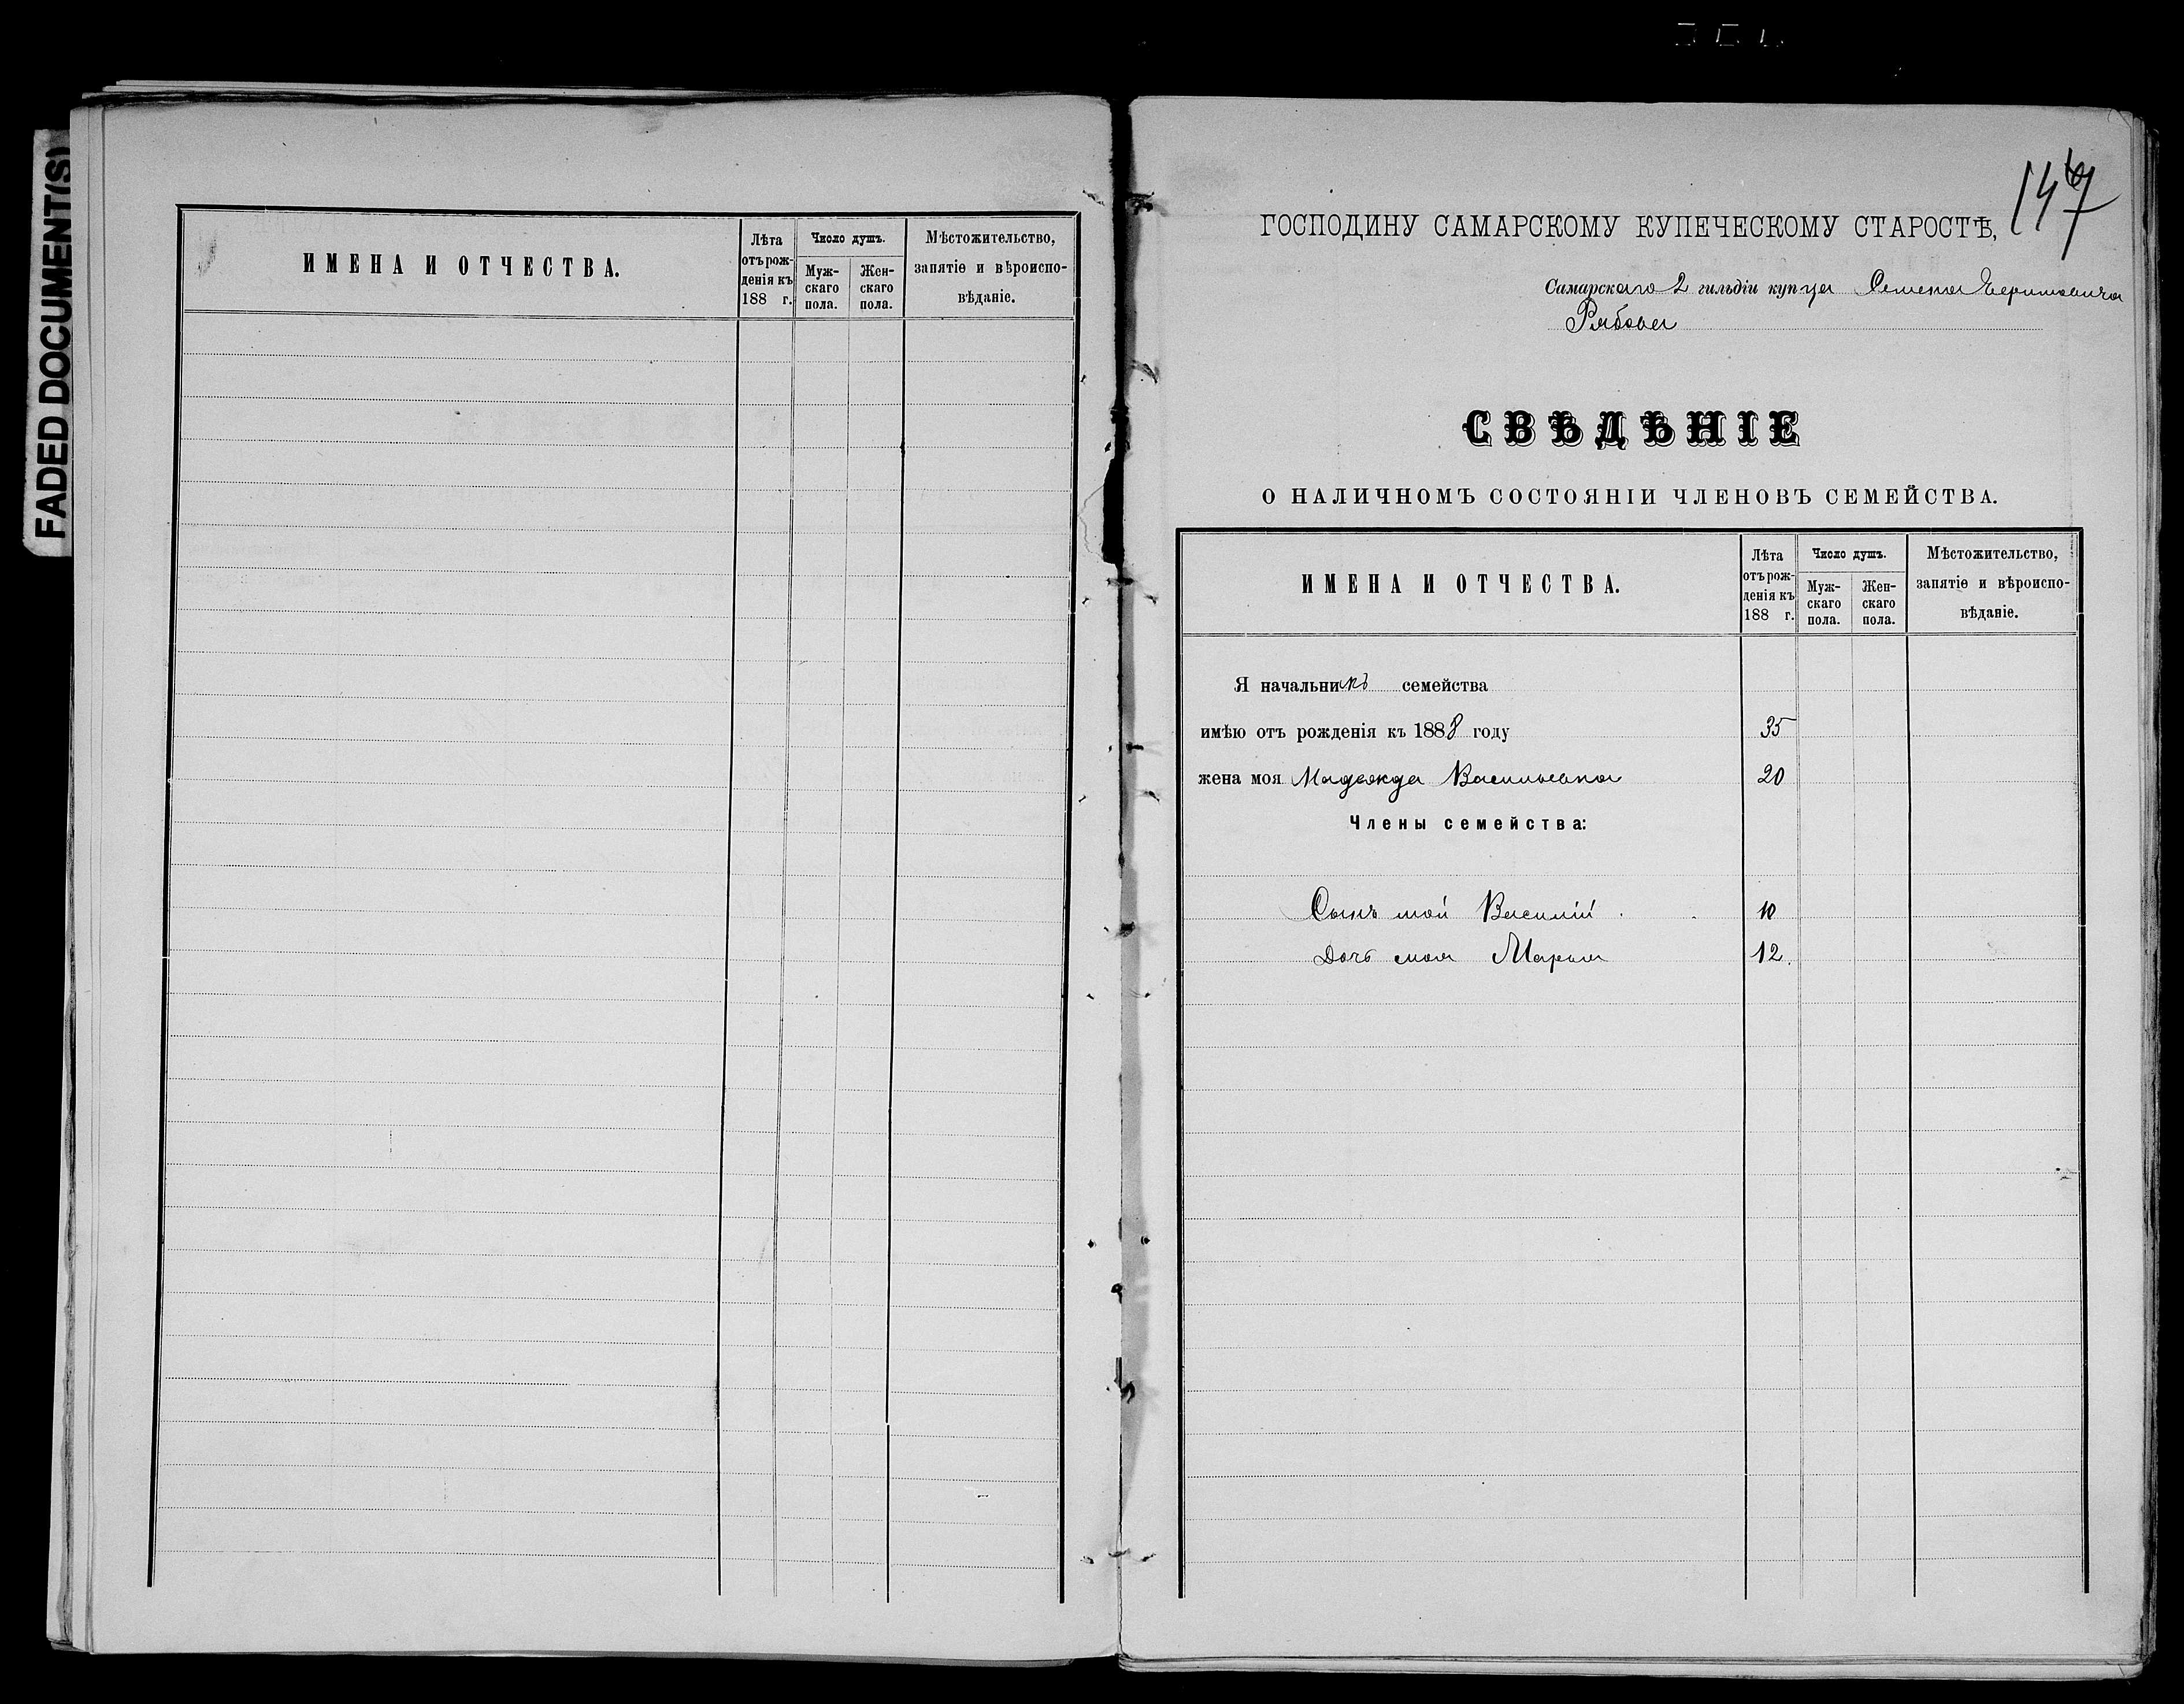 FADED DOCUMENT(S)
ИМЕНА И ОТЧЕСТВА.
Лѣта отъ рож-
денія къ
188 г.
Число душъ.
Муж-
скаго
пола.
Жен-
скаго
пола.
Мѣстожительство,
занятіе и вѣроиспо-
вѣданіе.
147
ГОСПОДИНУ САМАРСКОМУ КУПЕЧЕСКОМУ СТАРОСТѢ,
Самарскаго 2 гильдіи купца Семена
Рябова
СВѢДѢНІЕ
О НАЛИЧНОМЪ СОСТОЯНІИ ЧЛЕНОВЪ СЕМЕЙСТВА.
ИМЕНА И ОТЧЕСТВА.
Лѣта
отъ рож-
денія къ
188 г.
Число душъ.
Муж-
скаго
пола.
Жен-
скаго
пола.
Мѣстожительство,
занятіе и вѣроиспо-
вѣданіе.
Я начальникъ семейства
имѣю отъ рожденія къ 1888 году 35
жена моя Надежда Васильевна 20
Члены семейства:
Сынъ мой Василій 10
Дочь моя Марья 12.